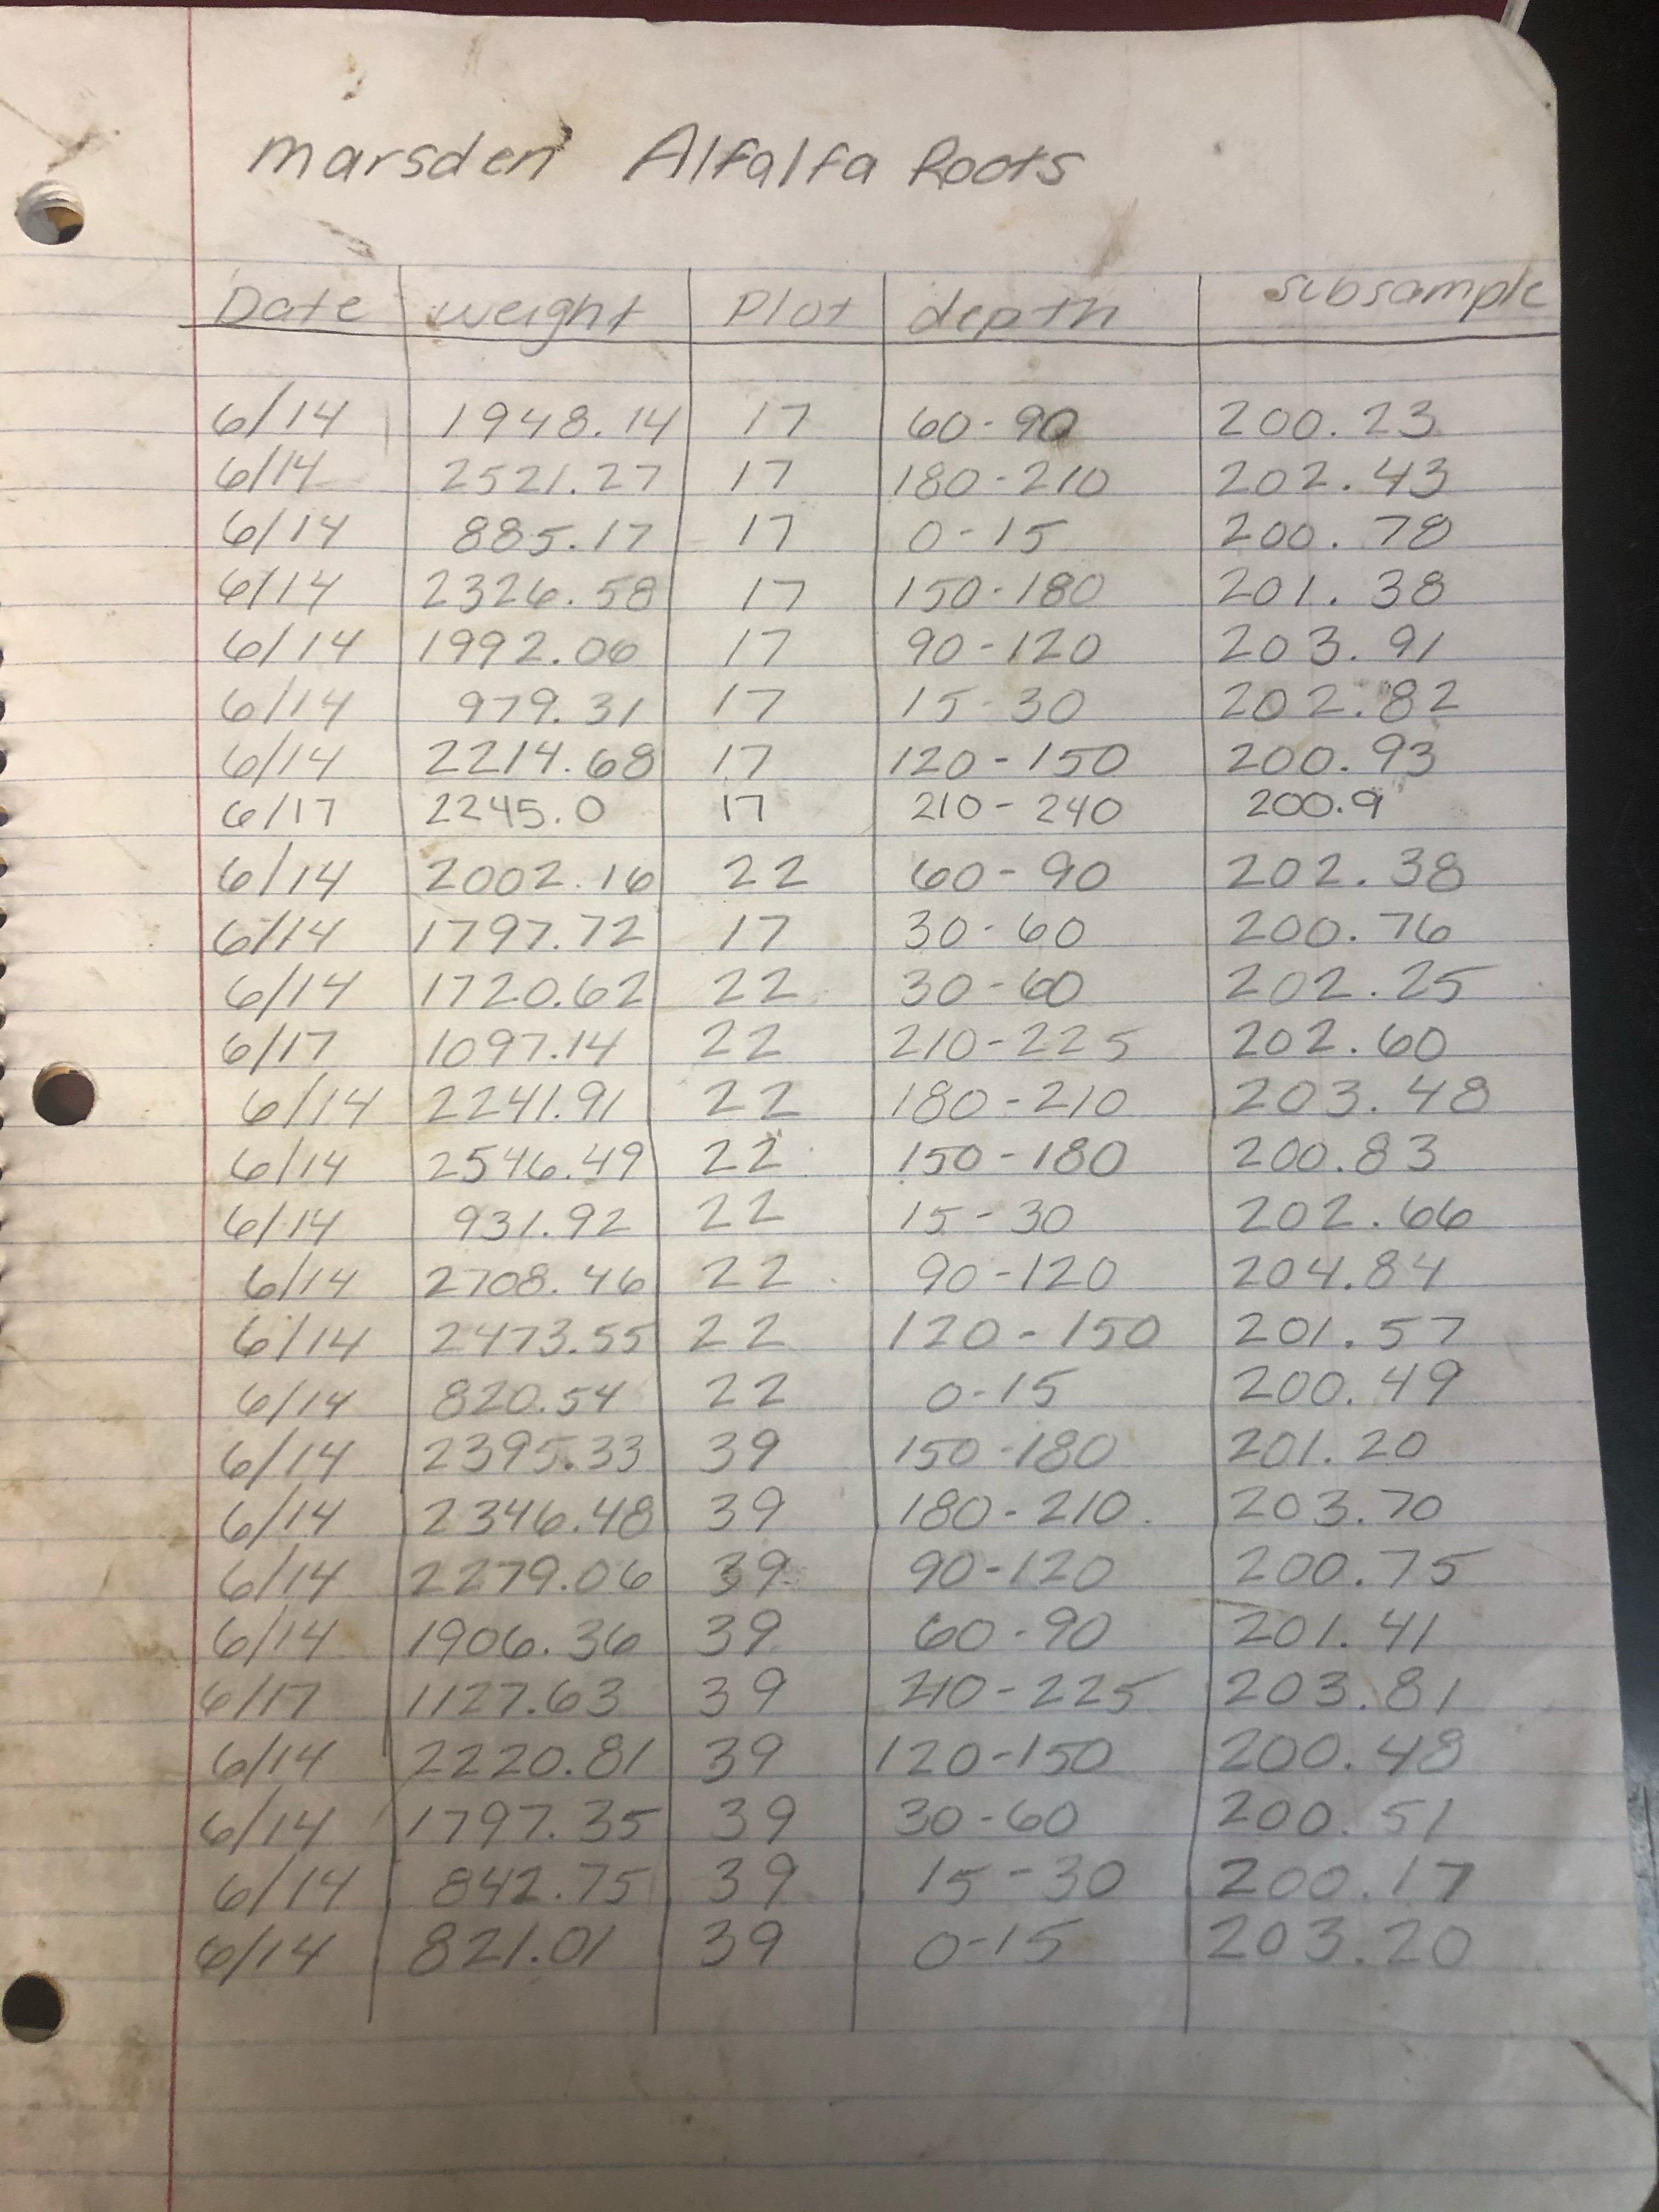 marsden Alfalfa Roots
Date weight Plot depth subsample
6/14 1948.14 17 60-90 200.23
6/14 2521.27 17 180-210 202.43
6/14 885.17 17 0-15 200.78
6/14 2326.58 17 150-180 201.38
6/14 1992.06 17 90-120 203.91
6/14 979.31 17 15-30 202.82
6/14 2214.68 17 120-150 200.93
6/17 2245.0 17 210-240 200.9
6/14 2002.16 22 60-90 202.38
6/14 1797.72 17 30-60 200.76
6/14 1720.62 22 30-60 202.25
6/17 1097.14 22 210-225 202.60
6/14 2241.91 22 180-210 203.48
6/14 2546.49 22 150-180 200.83
6/14 931.92 22 15-30 202.66
6/14 2708.46 22 90-120 204.84
6/14 2473.55 22 120-150 201.57
6/14 820.54 22 0-15 200.49
6/14 2395.33 39 150-180 201.20
6/14 2346.48 39 180-210 203.70
6/14 2279.06 39 90-120 200.75
6/14 1906.36 39 60-90 201.41
6/17 1127.63 39 210-225 203.81
6/14 2220.81 39 120-150 200.48
6/14 1797.35 39 30-60 200.51
6/14 842.75 39 15-30 200.17
6/14 821.01 39 0-15 203.20